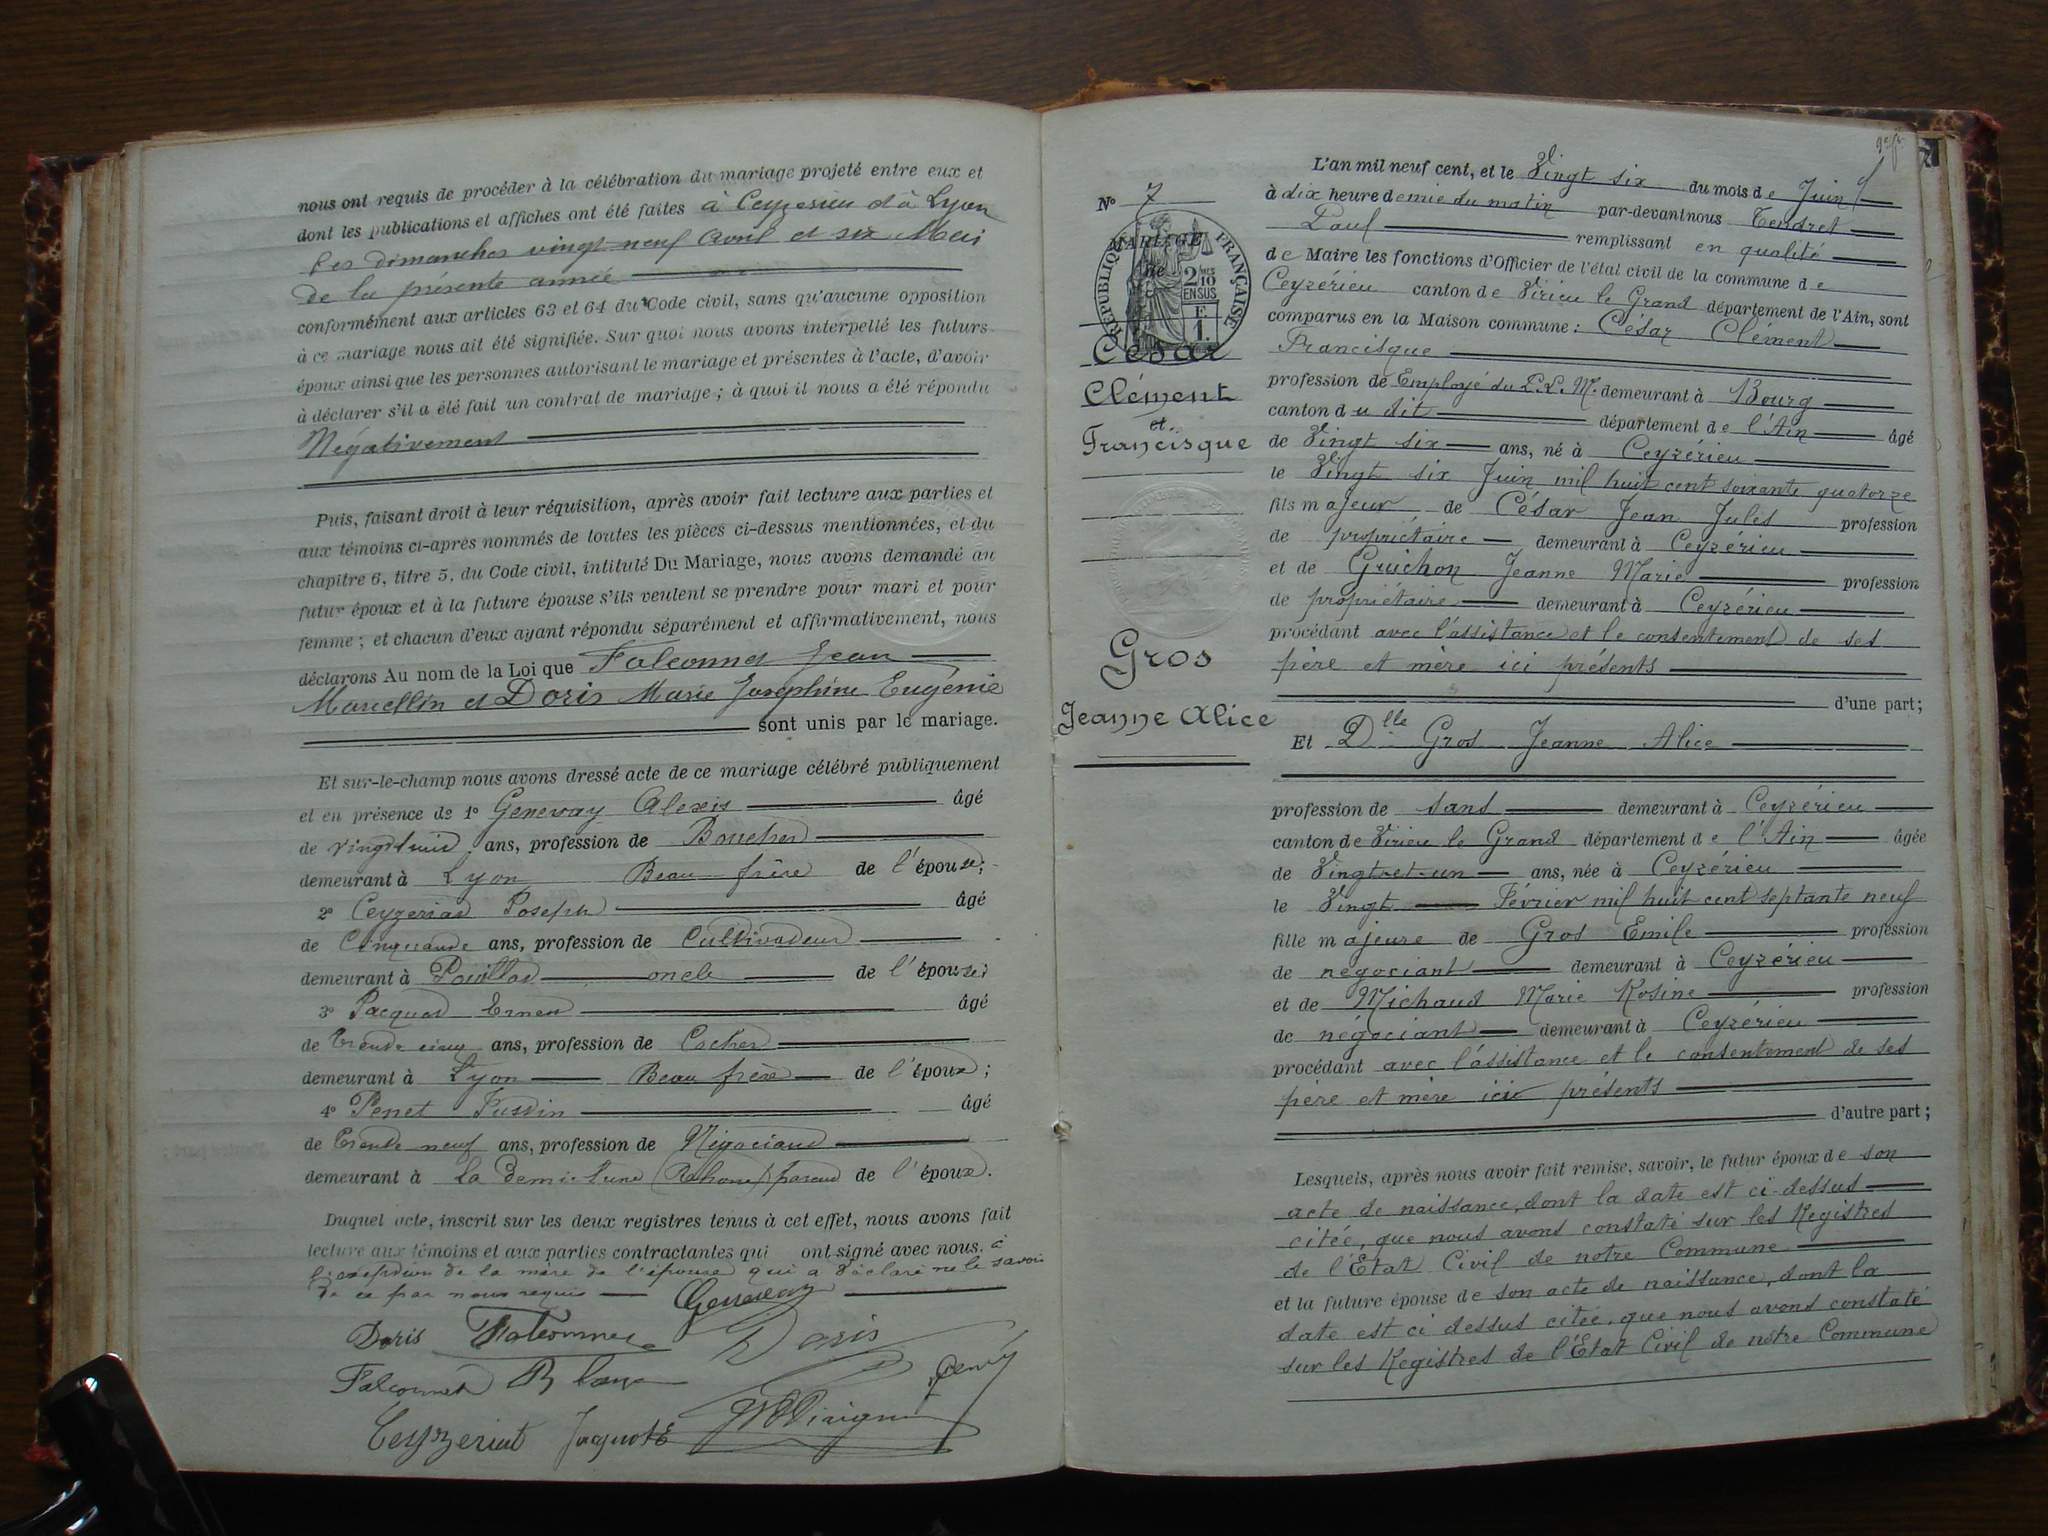 nous ont requis de procéder à la célébration du mariage projeté entre eux et
dont les publications et affiches ont été faites à Ceyzerieu et à Lyon
les dimanches vingt-neuf Avril et six Mai
de la présente année
conformément aux articles 63 et 64 du Code civil, sans qu'aucune opposition
à ce mariage nous ait été signifiée. Sur quoi nous avons interpellé les futurs
époux ainsi que les personnes autorisant le mariage et présentes à l'acte, d'avoir
à déclarer s'il a été fait un contrat de mariage ; à quoi il nous a été répondu
Négativement
Puis, faisant droit à leur réquisition, après avoir fait lecture aux parties et
aux témoins ci-après nommés de toutes les pièces ci-dessus mentionnées, et du
chapitre 6, titre 5, du Code civil, intitulé Du Mariage, nous avons demandé au
futur époux et à la future épouse s'ils veulent se prendre pour mari et pour
femme ; et chacun d'eux ayant répondu séparément et affirmativement, nous
déclarons Au nom de la Loi que Falconnet Jean
Marcellin et Doris Marie Joséphine Eugénie
sont unis par le mariage.
Et sur-le-champ nous avons dressé acte de ce mariage célébré publiquement
et en présence de 1° Genevay Alexis âgé
de vingt huit ans, profession de Boucher
demeurant à Lyon Beau frère de l'épouse;
2° Ceyzeriat Joseph âgé
de Cinquante ans, profession de Cultivateur
demeurant à oncle de l'épouse;
3° Jacquot Ernest âgé
de Trente cinq ans, profession de Cocher
demeurant à Lyon Beau frère de l'époux ;
4° Penet Justin âgé
de Trente neuf ans, profession de Négociant
demeurant à La Demi-Lune (Rhône) parent de l'époux.
Duquel acte, inscrit sur les deux registres tenus à cet effet, nous avons fait
lecture aux témoins et aux parties contractantes qui ont signé avec nous. à
l'exception de la mère de l'épouse qui a déclaré ne le savoir
de ce par nous requis Genevay
Doris Falconnet Doris
Falconnet Penet
Ceyzeriat Jacquot E
N° 7
MARIAGE
de
RÉPUBLIQUE FRANÇAISE
2/10 EN SUS
César
Clément
et
Francisque
Gros
Jeanne Alice
L'an mil neuf cent, et le Vingt six du mois de Juin
à dix heure demie du matin par-devant nous Tendret
Paul remplissant en qualité
de Maire les fonctions d'Officier de l'état civil de la commune de
Ceyzérieu canton de Virieu le Grand département de l'Ain, sont
comparus en la Maison commune : César Clément
Francisque
profession de Employé du P.L.M. demeurant à Bourg
canton du dit département de l'Ain âgé
de Vingt six ans, né à Ceyzérieu
le Vingt six Juin mil huit cent soixante quatorze
fils majeur de César Jean Jules profession
de propriétaire demeurant à Ceyzérieu
et de Gruchon Jeanne Marie profession
de propriétaire demeurant à Ceyzérieu
procédant avec l'assistance et le consentement de ses
père et mère ici présents
d'une part;
Et Dlle Gros Jeanne Alice
profession de sans demeurant à Ceyzérieu
canton de Virieu le Grand département de l'Ain âgée
de Vingt-et-un ans, née à Ceyzérieu
le Vingt Février mil huit cent septante neuf
fille majeure de Gros Emile profession
de négociant demeurant à Ceyzérieu
et de Michaud Marie Rosine profession
de négociant demeurant à Ceyzérieu
procédant avec l'assistance et le consentement de ses
père et mère ici présents
d'autre part;
Lesquels, après nous avoir fait remise, savoir, le futur époux de son
acte de naissance, dont la date est ci-dessus
citée, que nous avons constaté sur les Registres
de l'Etat Civil de notre Commune
et la future épouse de son acte de naissance, dont la
date est ci dessus citée, que nous avons constaté
sur les Registres de l'Etat Civil de notre Commune